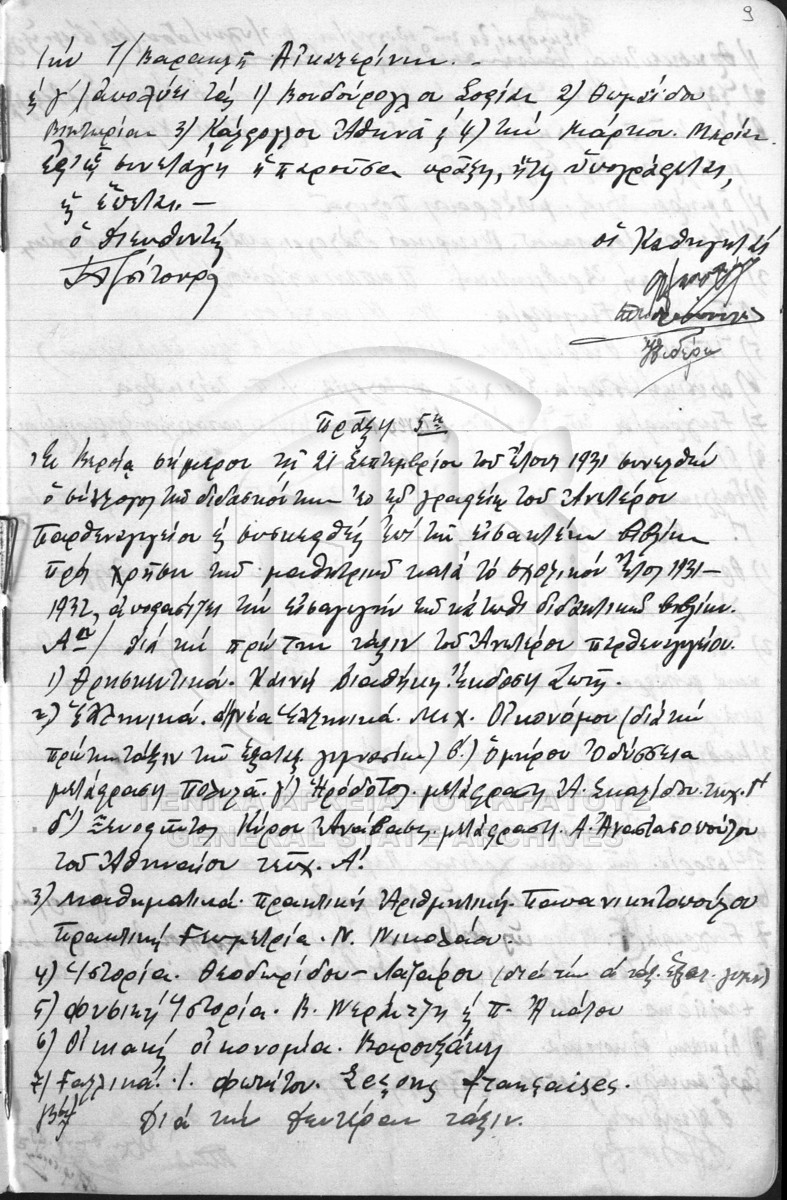 9
τήν 7) Βαρακλῆ Αἰκατερίνην. –
ἤ γ΄) ἀπολύει τάς 1) Βουδούρογλου Σοφίαν 2) Θωμαΐδου
Βικτωρίαν 3) Κάζογλου Ἀθηνᾶ ἤ 4) τήν Μάρκου Μαρίαν
Ἐφ' ᾧ συνετάγη ἡ παροῦσα πρᾶξις, ἥτις ὑπογράφεται,
ὡς ἕπεται. –
ὁ Διευθυντής
οἱ Καθηγηταί
Πρᾶξις 5η
Ἐν Βεροίᾳ σήμερον τῇ 21 Σεπτεμβρίου τοῦ ἔτους 1931 συνελθών
ὁ σύλλογος τῶν διδασκόντων ἐν τῷ γραφείῳ τοῦ Ἀνωτέρου
Παρθεναγωγείου καί συσκεφθείς ἐπί τῶν εἰσακτέων βιβλίων
πρός χρῆσιν τῶν μαθητριῶν κατά τό σχολικόν ἔτος 1931–
1932, ἀποφασίζει τήν εἰσαγωγήν τῶν κάτωθι διδακτικῶν βιβλίων.
Αον/ διά τήν πρώτην τάξιν τοῦ Ἀνωτέρου παρθεναγωγείου.
1) Θρησκευτικά. Καινή Διαθήκη Ἔκδοσις Ζωῆς.
2) Ἑλληνικά. α) νέα Ἑλληνικά. Μιχ. Οἰκονόμου (διά τήν
πρώτην τάξιν τῶν ἑξατ. γυμνασίων) β΄) Ὁμήρου Ὀδύσσεια
μετάφρασις Πολυλᾶ. γ΄) Ἡρόδοτος. μετάφρασις Ἀ. Σκαλίδου. τευχ. Α΄
δ΄) Ξενοφῶντος Κύρου Ἀνάβασις. μετάφρασις. Α. Ἀναστασοπούλου
τοῦ Ἀθηναίου τευχ. Α΄.
3) Μαθηματικά. πρακτική Ἀριθμητική. Παπανικητοπούλου
Πρακτική Γεωμετρία. Ν. Νικολάου.
4) Ἱστορία. Θεοδωρίδου – Λαζάρου (διά τήν α΄ τάξ. ἑξατ. γυμν)
5) Φυσική Ἱστορία. Β. Νεράντζη ἤ Π.
6) Οἰκιακή οἰκονομία.
7) Γαλλικά. Ι. Φωκίτου. Leçons françaises.
Διά τήν Δευτέραν τάξιν.
ΓΕΝΙΚΑ ΑΡΧΕΙΑ ΤΟΥ ΚΡΑΤΟΥΣ
GENERAL STATE ARCHIVES